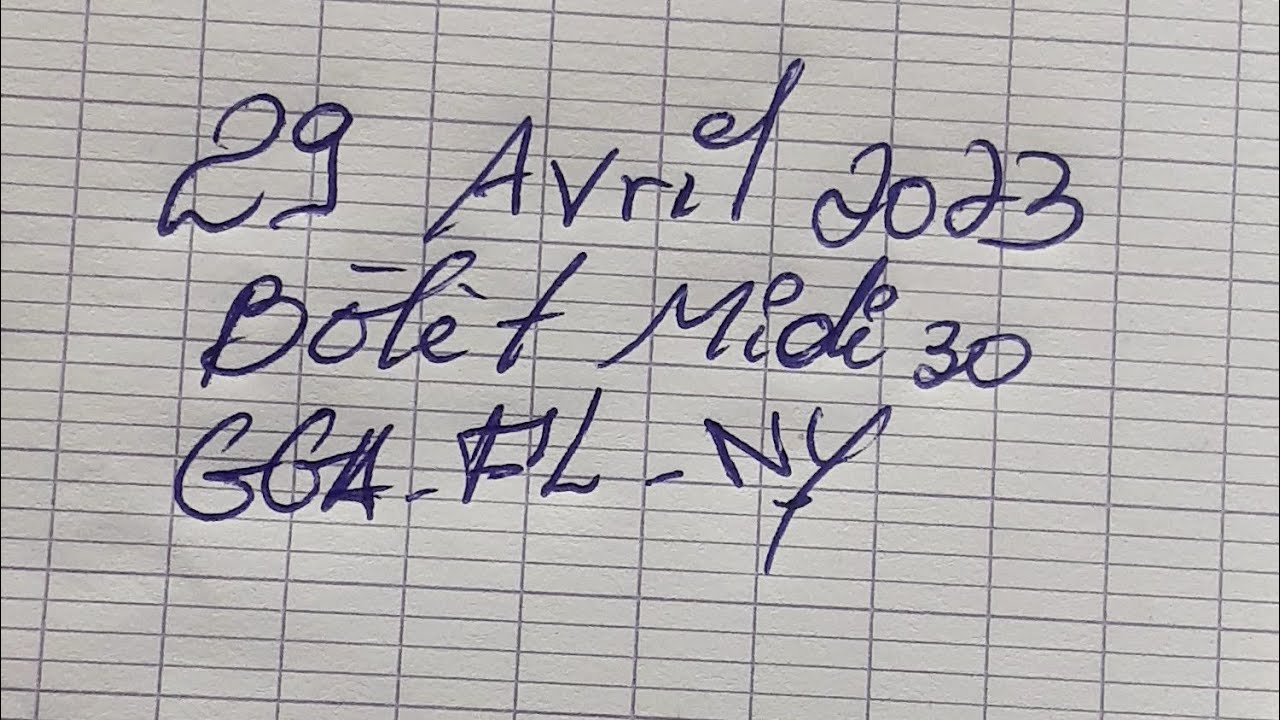 29 Avril 2023
Bōlèt Midi 30
GGA - FL - NY